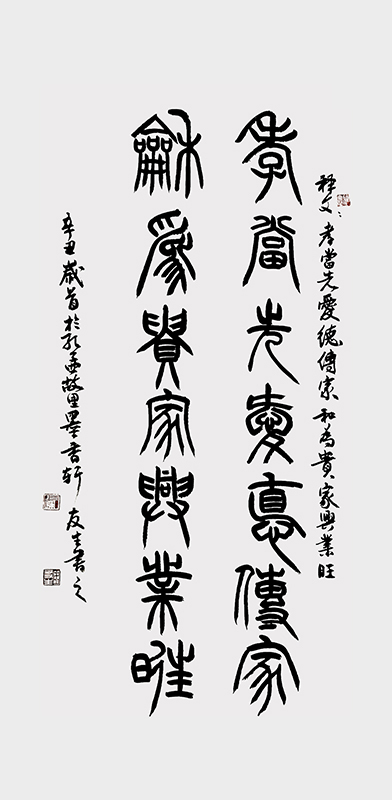 释文：孝當先愛德傳家和為貴家興業旺
孝當先愛悳傳家
龢爲貴家興業暀
辛丑歲首於孔孟故里墨香軒友生書之